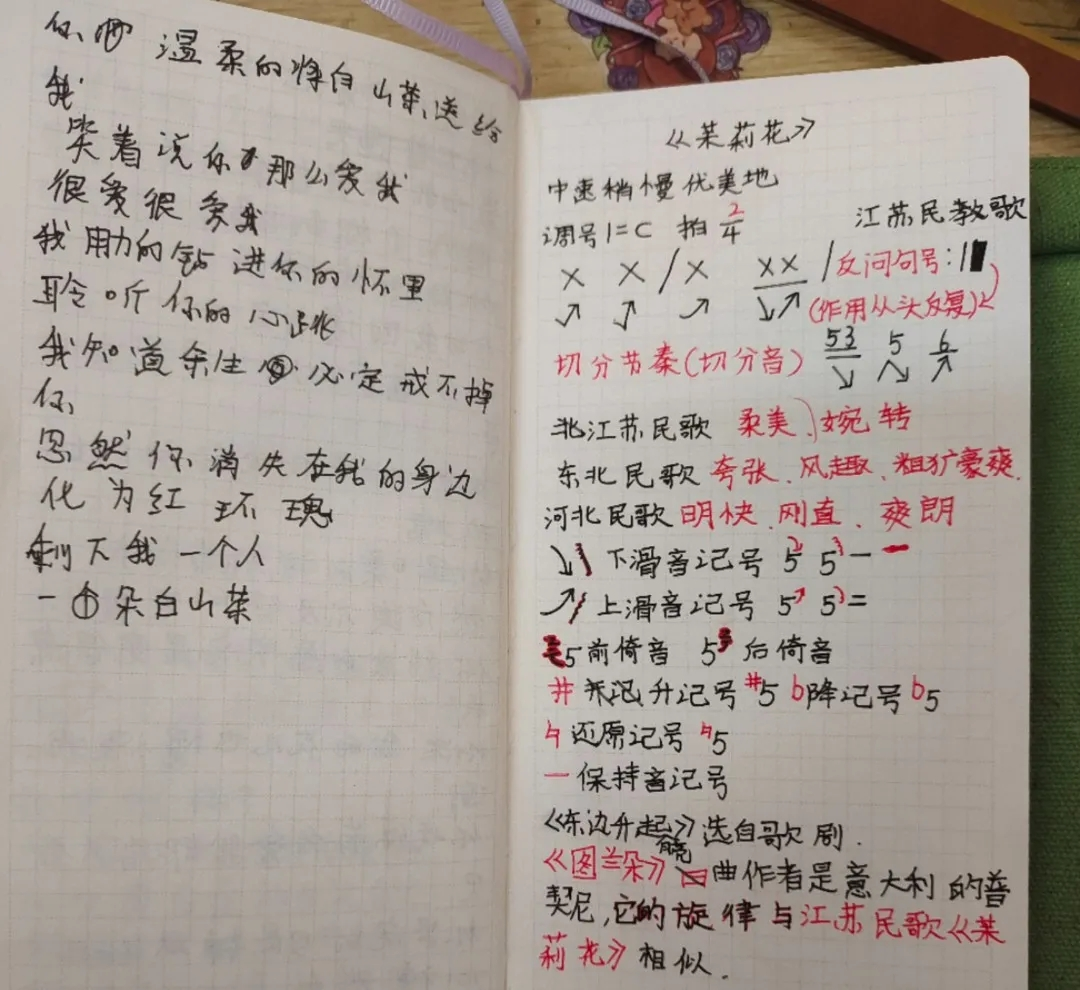 你 温柔的将白山茶送给
我
笑着说你那么爱我
很爱很爱我
我用力的钻进你的怀里
聆听你的心跳
我知道余生必定戒不掉
你
忽然你消失在我的身边
化为红玫瑰
剩下我一个人
一朵白山茶
《茉莉花》
中速稍慢优美地
江苏民歌
调号1=C 拍2/4
X X / X XX / 反问句号:||
↗ ↗ ↗ ↘↗ (作用从头反复)
切分节奏(切分音) 53 5 6
↘ ↗↘ ↗
江苏民歌 柔美、婉转
东北民歌 夸张、风趣、粗犷豪爽.
河北民歌 明快、刚直、爽朗
↘ 下滑音记号 5 5 一
↗ 上滑音记号 5 5 =
5前倚音 5 后倚音
# 升记号 #5 b降记号 b5
♮ 还原记号 ♮5
一 保持音记号
《东边升起》选自歌剧.
《图兰朵》 曲作者是意大利的普
契尼,它的旋律与江苏民歌《茉
莉花》相似.